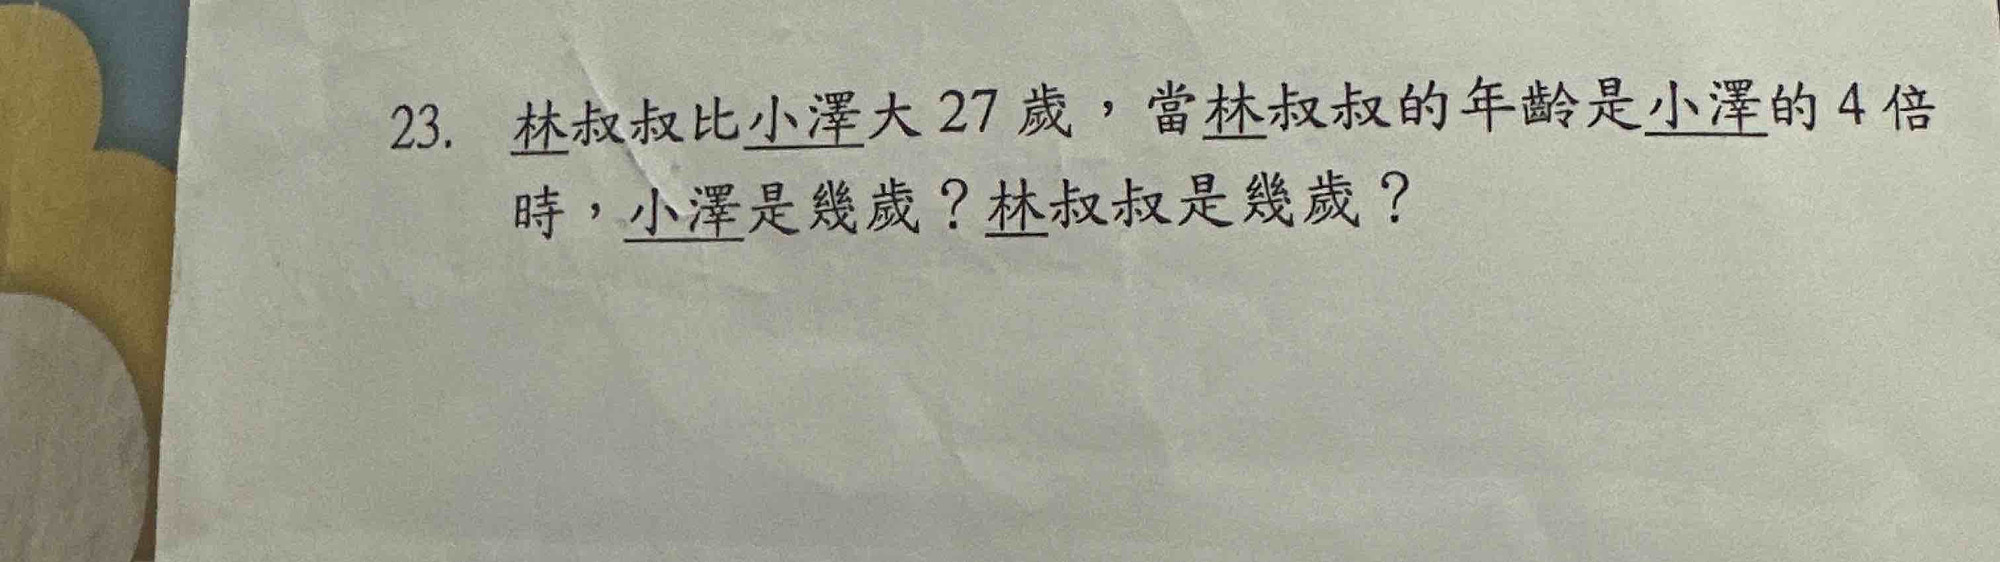 23. 林叔叔比小澤大 27 歲，當林叔叔的年齡是小澤的 4 倍
時，小澤是幾歲？林叔叔是幾歲？